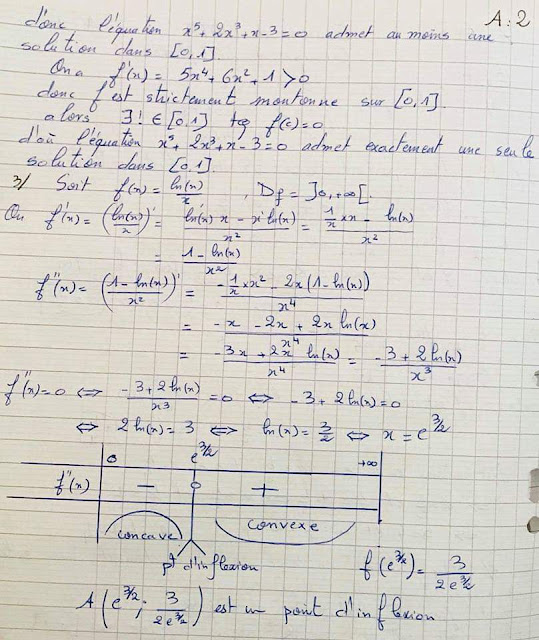 A:2
donc l'équation x⁵+2x³+x-3=0 admet au moins une
solution dans [0,1].
On a f'(x) = 5x⁴+6x²+1 >0
donc f est strictement montonne sur [0,1].
alors ∃! ∈ [0,1] tq f(c)=0
d'où l'équation x⁵+2x³+x-3=0 admet exactement une seule
solution dans [0,1].
3/ Soit f(x) = ln(x)/x , Df = ]0,+∞[.
On f'(x) = (ln(x)/x)' = (ln'(x) x - x' ln(x))/x² = (1/x × x - ln(x))/x²
= (1 - ln(x))/x²
f''(x) = ((1-ln(x))/x²)' = (-1/x × x² - 2x(1-ln(x)))/x⁴
= (-x - 2x + 2x ln(x))/x⁴
= (-3x + 2x ln(x))/x⁴ = (-3 + 2ln(x))/x³
f''(x)=0 ⇔ (-3+2ln(x))/x³ = 0 ⇔ -3+2ln(x)=0
⇔ 2ln(x)=3 ⇔ ln(x)=3/2 ⇔ x=e^(3/2)
0 e^(3/2) +∞
f''(x) - 0 +
concave convexe
pt d'inflexion
f(e^(3/2)) = 3/(2e^(3/2))
A(e^(3/2); 3/(2e^(3/2))) est un point d'inflexion